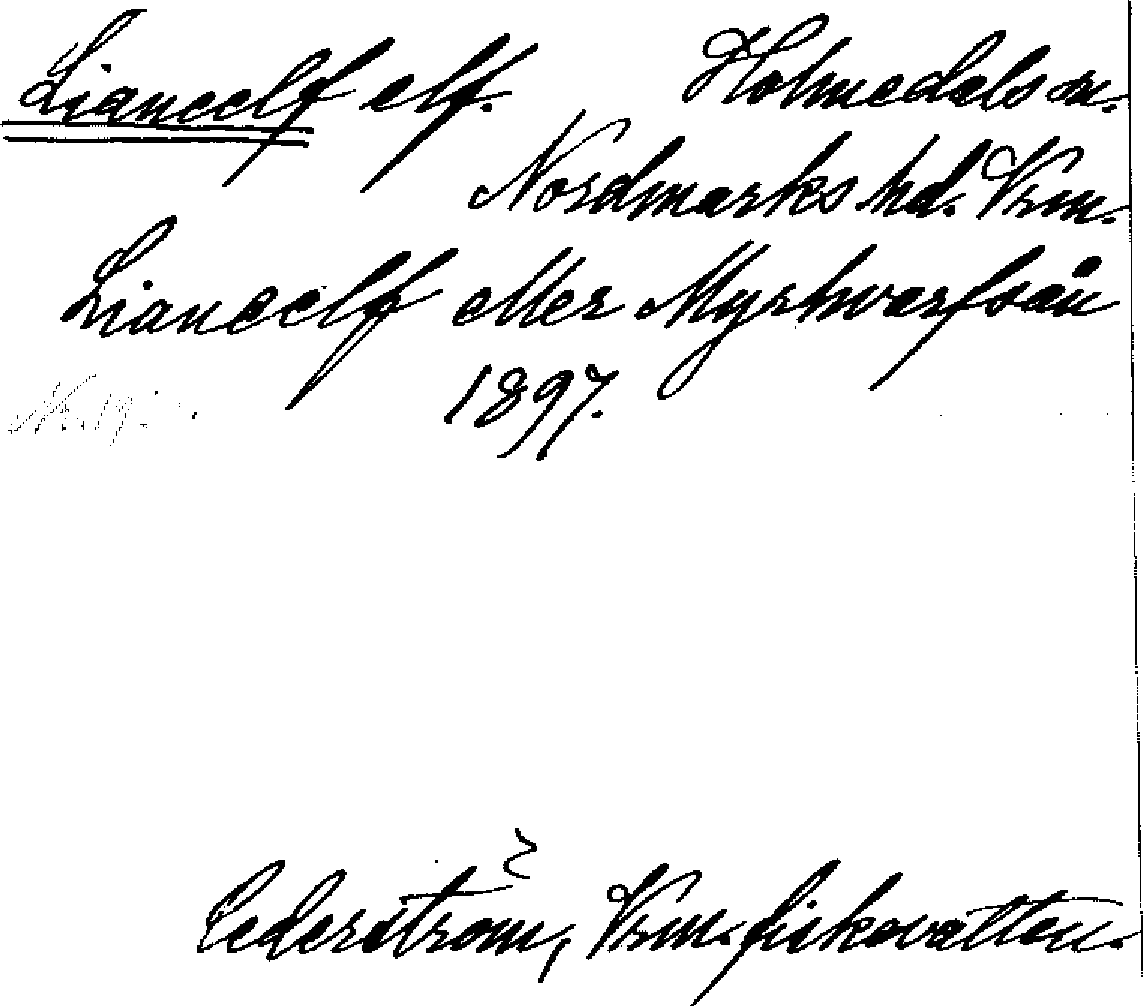 Lianeelf elf. Holmedals sn.
Nordmarks hd. Vrm.
Lianeelf eller Myrhvarfsån
1897.
Cederström, Vrm. fiskevatten.